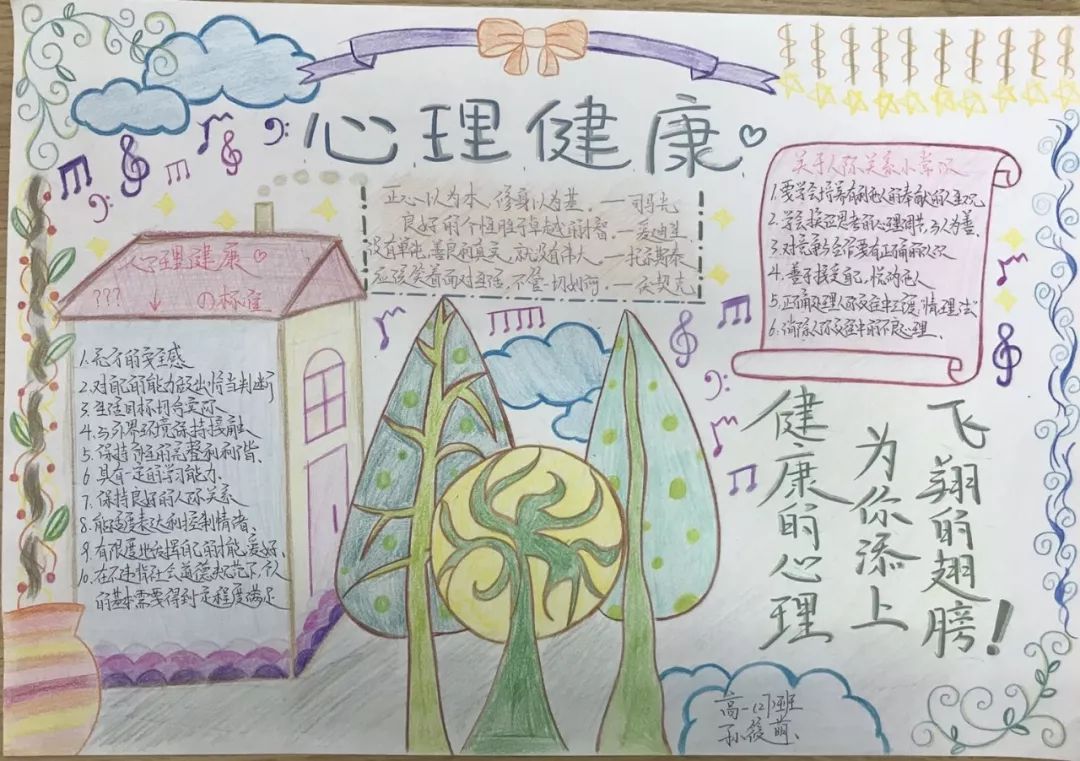 心理健康
正心以为本，修身以为基。——司马光
良好的个性胜于卓越的才智。——爱迪生
没有单纯、善良和真实，就没有伟大。——托尔斯泰
应该笑着面对生活，不管一切如何。——伏契克
心理健康
??? ↓ の标准
1.充分的安全感
2.对自己的能力做出恰当判断
3.生活目标切合实际、
4.与外界环境保持接触
5.保持个性的完整和和谐、
6.具有一定的学习能力、
7.保持良好的人际关系
8.能适度表达和控制情绪、
9.有限度地发挥自己的才能、爱好、
10.在不违背社会道德规范下,个人
的基本需要得到一定程度满足
关于人际关系小常识
1.要学会培养有利他人的奉献的
2.学会换位思考的心理调节,与人为善、
3.对竞争与合作要有正确的认识
4.善于接受自己,悦纳他人
5.正确处理人际交往中三度,"情理法"
6.消除人际交往中的不良心理、
健康的心理
为你添上
飞翔的翅膀!
高一(2)班
孙筱萌、